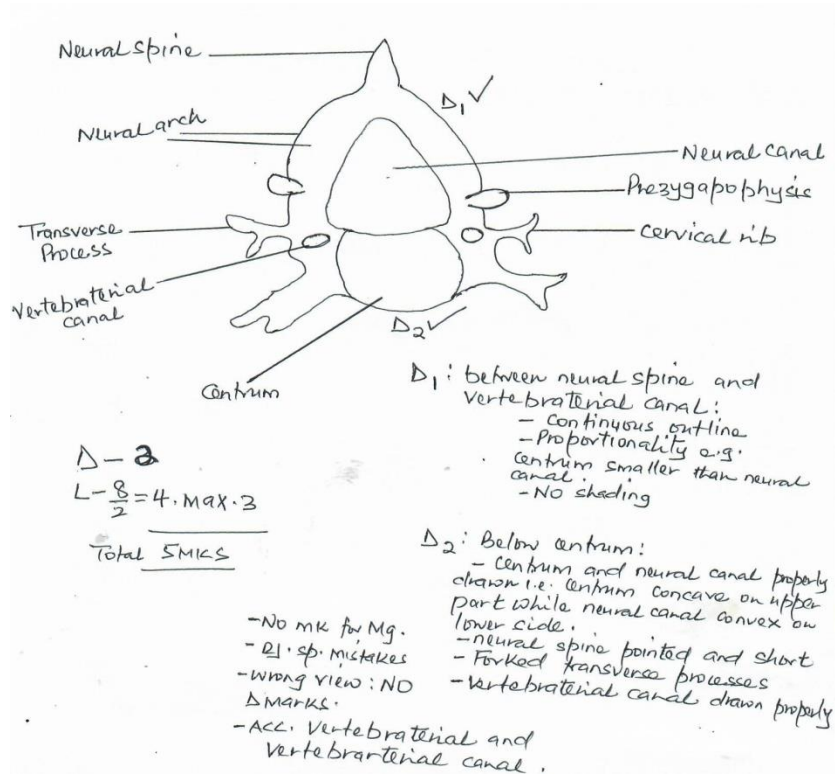 Neural spine
D₁ ✓
Neural arch
Neural canal
Prezygapophysis
Transverse
Process
Cervical rib
Vertebraterial
canal
D₂ ✓
Centrum
D₁: between neural spine and
vertebraterial canal:
- Continuous outline
- Proportionality e.g.
centrum smaller than neural
canal.
- No shading
D - 2
L - 8/2 = 4. Max. 3
Total 5MKS
D₂: Below centrum:
- Centrum and neural canal properly
drawn i.e. centrum concave on upper
part while neural canal convex on
lower side.
- neural spine pointed and short
- Forked transverse processes
- Vertebraterial canal drawn properly
- No mk for Mg.
- sp. mistakes
- Wrong view: NO
D marks.
- Acc. Vertebraterial and
vertebrarterial canal.